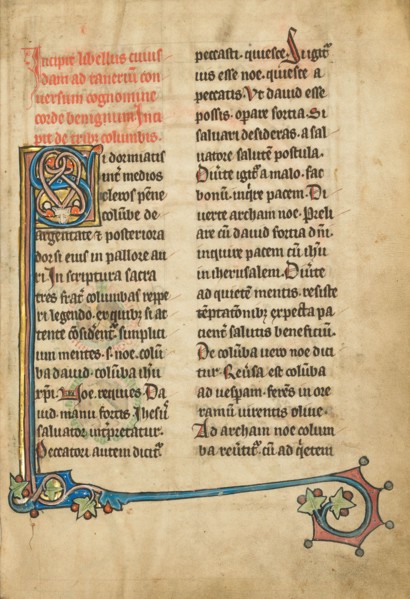 Incipit libellus cuius
dam ad ranerium con
uersum cognomine
corde benignum. Inci
pit de tribus columbis.
Si dormiatis
inter medios
cleros penne
columbe de
argentate ⁊ posteriora
dorsi eius in pallore au
ri. In scriptura sacra
tres frater columbas reppe
ri legendo. ex quibus si at
tente considerentur simplici
um mentes. s. noe. colum
ba dauid. columba ihesu
xpisti. Noe. requies. Da
uid. manu fortis. Ihesus
saluator interpretatur.
Peccatori autem dicitur.
peccasti. quiesce. Si igitur
uis esse noe. quiesce a
peccatis. Vt dauid esse
possis. operare fortia. Si
saluari desideras. a sal
uatore salutem postula.
Diuerte igitur a malo. fac
bonum. inquire pacem. Di
uerte archam noe. Preli
are cum dauid fortia domini.
inquire pacem cum ihesu
in iherusalem. Diuerte
ad quietem mentis. resiste
temptationibus. expecta pa
cienter salutis beneficium.
De columba uero noe dici
tur. Reuersa est columba
ad uesperam. ferens in ore
ramum uirentis oliue.
Ad archam noe colum
ba reuertitur. cum ad quietem